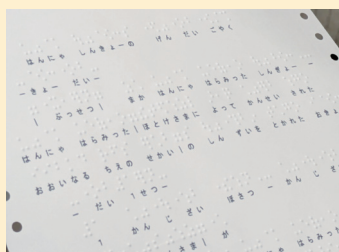 はんにゃ しんきょーの げん だい ごやく
ーきょー だいー
| ぶっせつ | まか はんにゃ はらみった しんぎょー ー
はんにゃ はらみった|ほとけさまに よって かんせい された
おおいなる ちえの せかい|の しん ずいを とかれた おきょ
ー だい 1せつー
1 かん じ ざい ぼさつ ー かん じ ざ
さま| が
はんにゃ はらみった